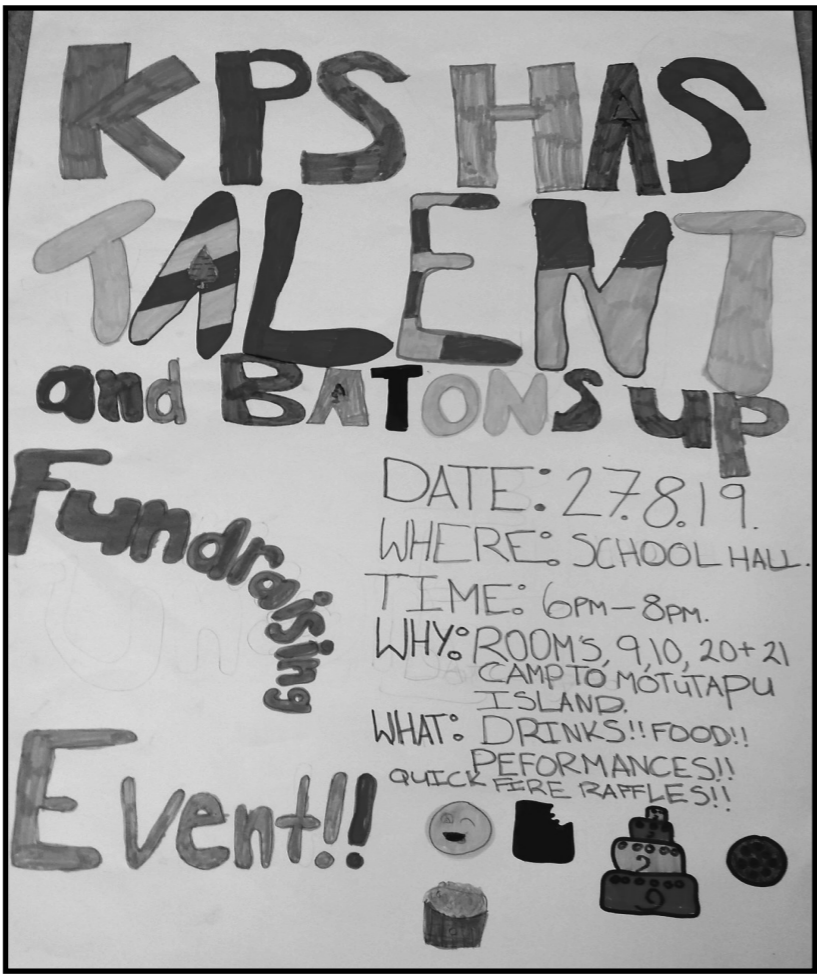 KPS HAS
TALENT
and BATONS up
Fundraising
Event!!
DATE: 27.8.19.
WHERE: SCHOOL HALL.
TIME: 6PM-8PM.
WHY: ROOM'S, 9,10, 20+21
CAMP TO MOTUTAPU
ISLAND.
WHAT: DRINKS!! FOOD!!
PEFORMANCES!!
QUICK FIRE RAFFLES!!